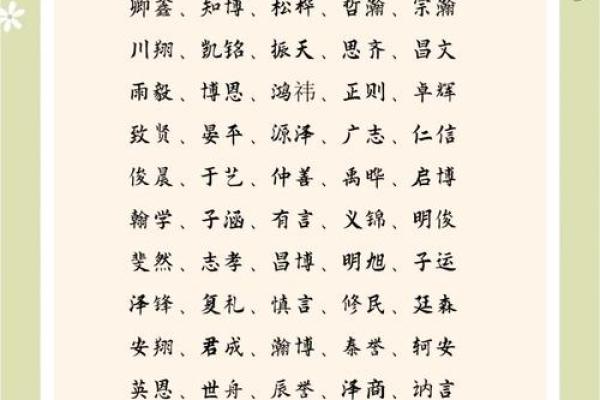 卿鑫、知博、松桦、哲瀚、宗瀚
川翔、凯铭、振天、思齐、昌文
雨毅、博恩、鸿祎、正则、卓辉
致贤、晏平、源泽、广志、仁信
俊晨、于艺、仲善、禹晔、启博
翰学、子涵、有言、义锦、明俊
斐然、志孝、昌博、明旭、子运
泽锋、复礼、慎言、修民、廷森
安翔、君成、瀚博、泰誉、轲安
英恩、世舟、辰誉、泽商、讷言